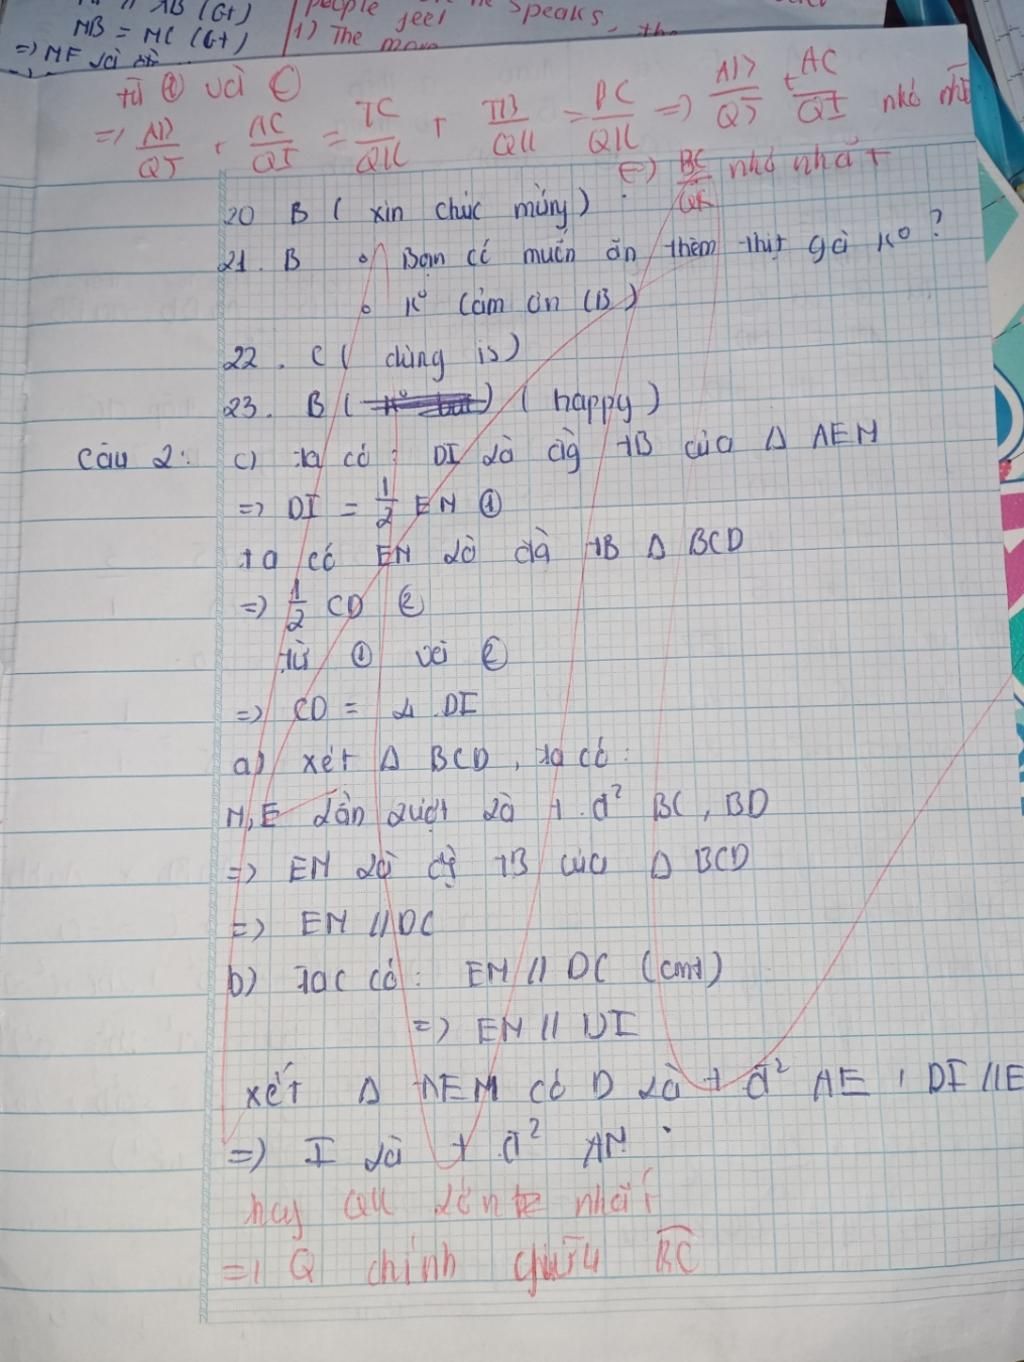 // AB (Gt)
MB = MC (Gt)
=) MF là
people feel
he speaks, the
1) The more
từ ② và ①
=) AD/QJ + AC/QI = IC/QK + IB/QK = BC/QK =) AD/QJ + AC/QI nhỏ nhất
(=) BC/QK nhỏ nhất
20 B ( xin chúc mừng )
21. B o Bạn có muốn ăn thêm thịt gà ko ?
o Ko cảm ơn (B)
22. C ( dùng is )
23. B ( happy )
Câu 2: c) ta có : DI là đg TB của Δ AEM
=) DI = 1/2 EM ①
ta có EM là đg TB Δ BCD
=) 1/2 CD ②
từ ① và ②
=) CD = 4 DI
a) xét Δ BCD, ta có:
M, E lần lượt là t.đ² BC, BD
=) EM là đg TB của Δ BCD
=) EM // DC
b) Tac có: EM // DC (cmt)
=) EM // DI
xét Δ AEM có D là t đ² AE, DI // E
=) I là t đ² AM.
hay QK lớn nhất
=) Q chính giữa BC